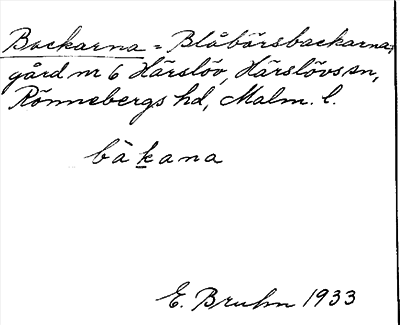 Backarna = Blåbärsbackarna,
gård nr 6 Härslöv, Härslövs sn,
Rönnebergs hd, Malm. l.
bàkana
E. Bruhn 1933